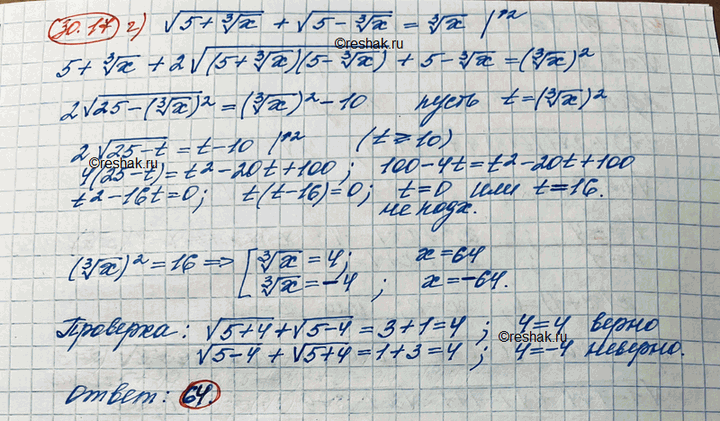 30.17 г) √(5+∛x) + √(5-∛x) = ∛x |↑2
©reshak.ru
5+∛x + 2√((5+∛x)(5-∛x)) + 5-∛x = (∛x)²
2√(25-(∛x)²) = (∛x)² - 10 пусть t = (∛x)²
2√(25-t) = t-10 |↑2 (t ⩾ 10)
©reshak.ru
4(25-t) = t² - 20t + 100 ; 100-4t = t² - 20t + 100
t² - 16t = 0; t(t-16) = 0; t = 0 или t = 16.
не подх.
(∛x)² = 16 ⇒ [ ∛x = 4; x = 64
∛x = -4 ; x = -64.
Проверка: √(5+4) + √(5-4) = 3+1 = 4 ; 4 = 4 верно
©reshak.ru
√(5-4) + √(5+4) = 1+3 = 4 ; 4 = -4 неверно.
Ответ: 64.